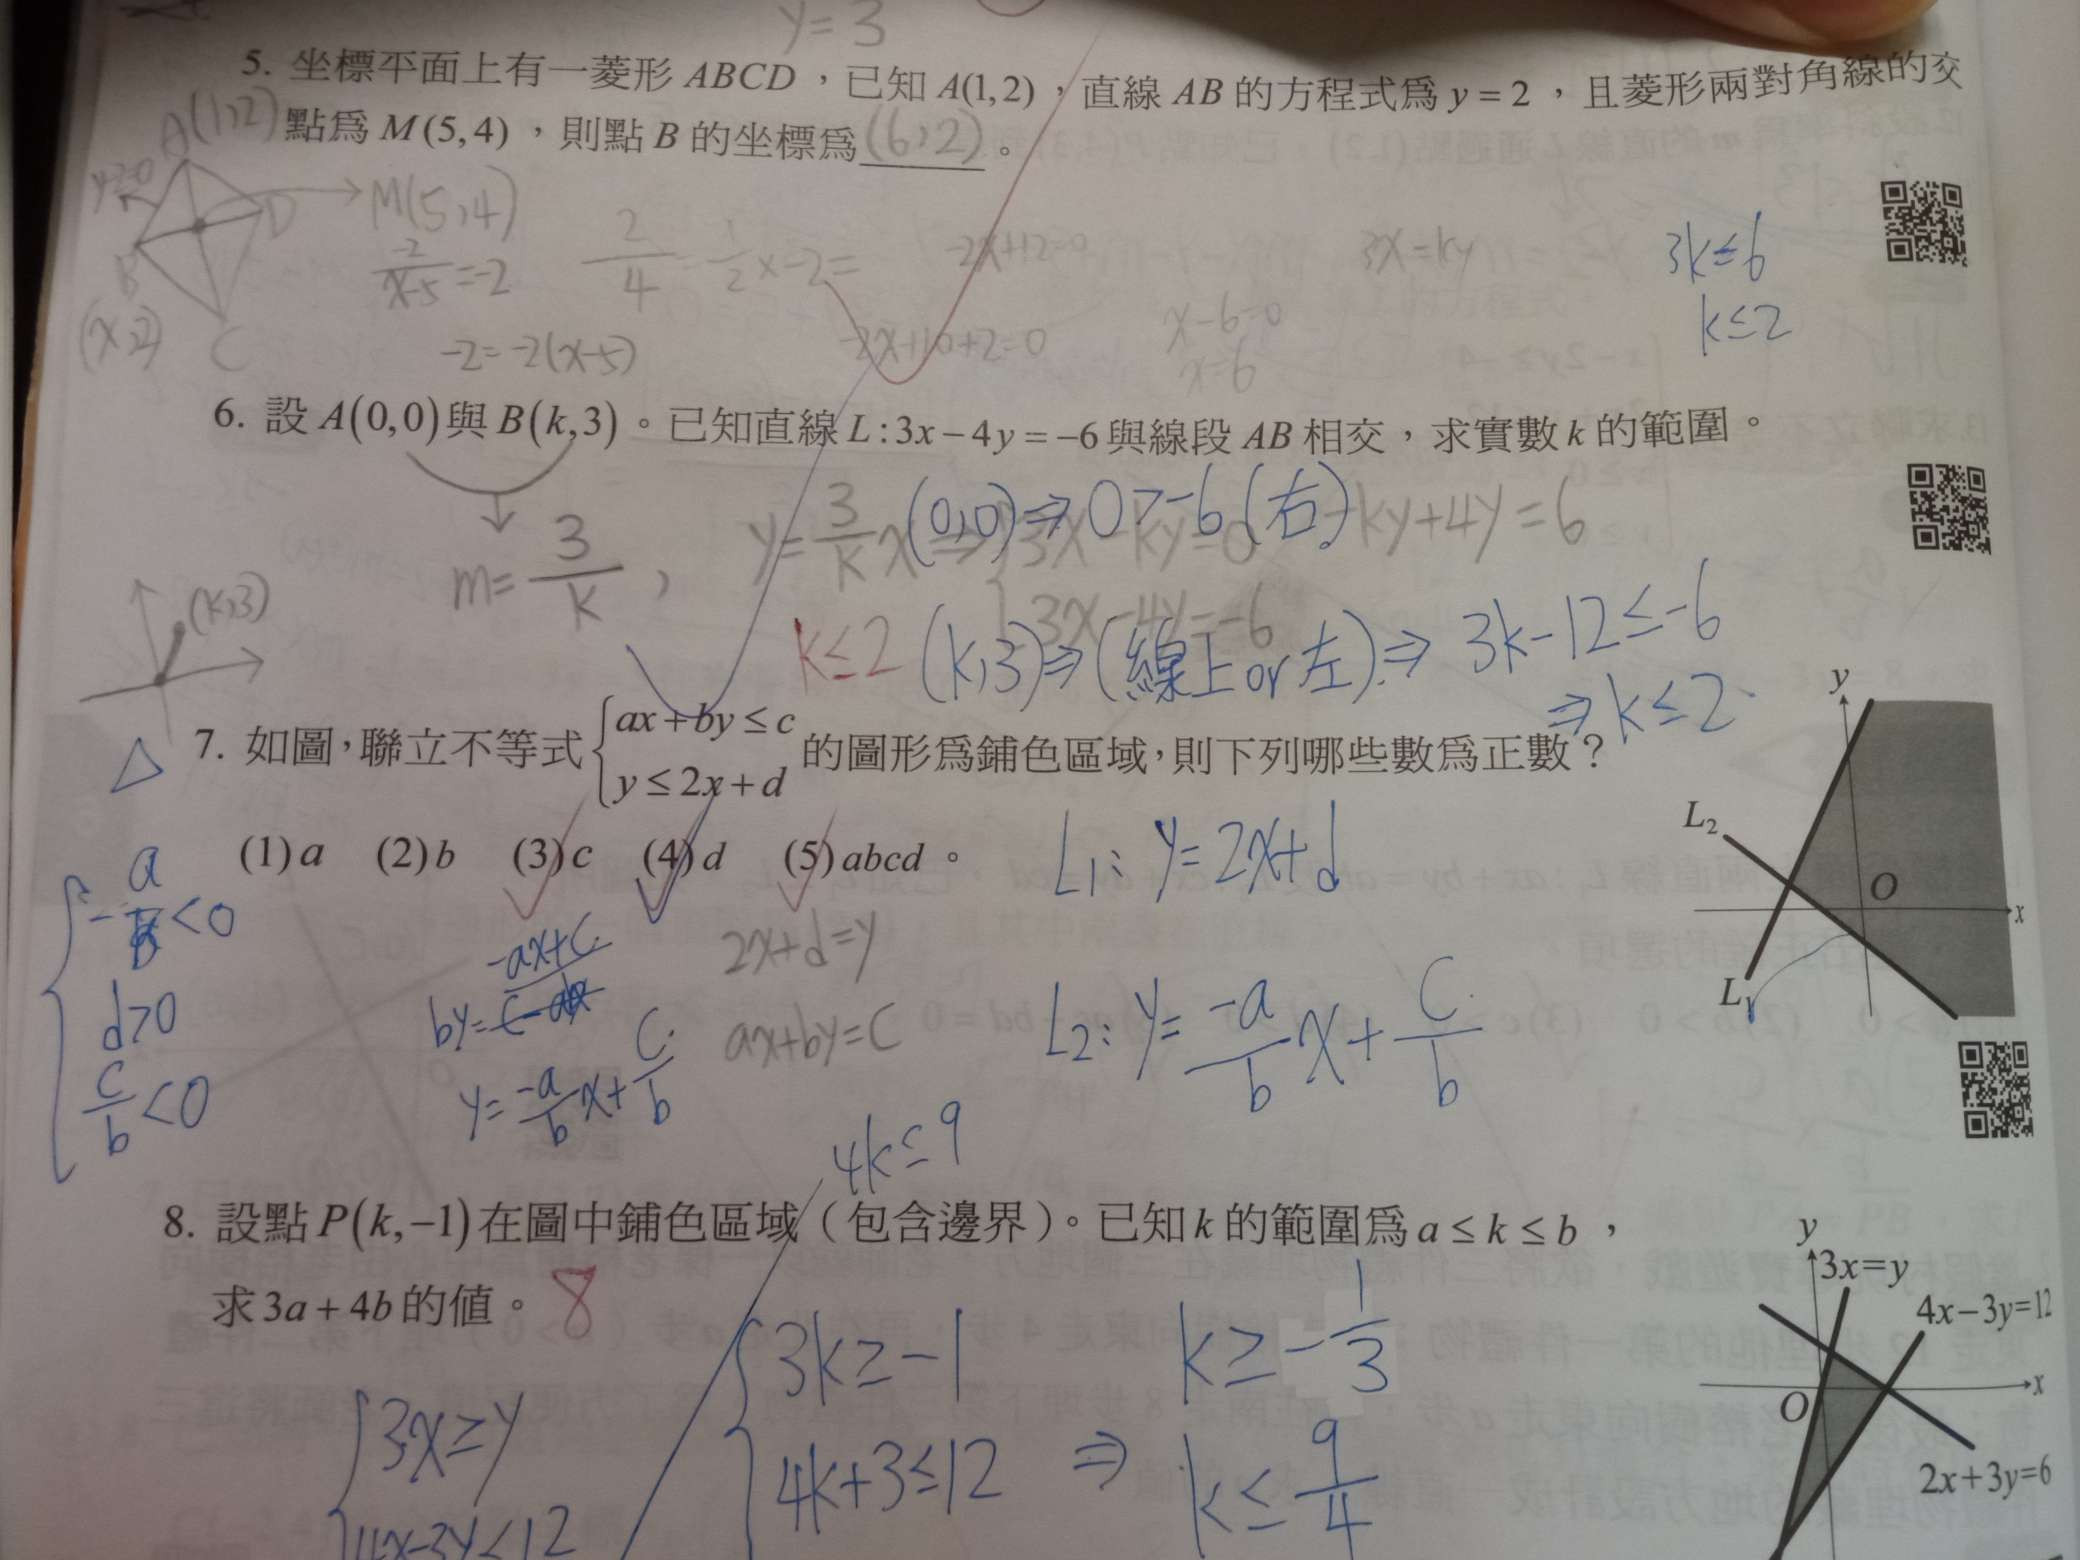 y=3
5. 坐標平面上有一菱形 ABCD，已知 A(1,2)，直線 AB 的方程式為 y = 2，且菱形兩對角線的交
點為 M (5,4)，則點 B 的坐標為 (6,2)。
A(1,2)
D
B
C
(x,2)
M(5,4)
2/(x-5) = -2
2/4
-2 = -2(x-5)
-2x+12=0
-2x+10+2=0
x-6=0
x=6
3x=ky
3k≤6
k≤2
6. 設 A(0,0) 與 B(k,3)。已知直線 L:3x－4y＝－6 與線段 AB 相交，求實數 k 的範圍。
(k,3)
m = 3/k ,
y = 3/k x ⇒ 3x-ky=0
3x-4y=-6
-ky+4y=6
(0,0) ⇒ 0 > -6 (右)
k≤2
(k,3) ⇒ (線上or左) ⇒ 3k-12≤-6
⇒ k≤2
△
7. 如圖，聯立不等式 { ax+by≤c
y≤2x+d 的圖形為鋪色區域，則下列哪些數為正數？
(1) a (2) b (3) c (4) d (5) abcd。
-a/b<0
d>0
c/b<0
by= -ax+c
y= -a/b x + c/b
2x+d=y
ax+by=c
L₁: y=2x+d
L₂: y= -a/b x + c/b
y
L₂
O
x
L₁
4k≤9
8. 設點 P(k,−1) 在圖中鋪色區域（包含邊界）。已知 k 的範圍為 a ≤ k ≤ b，
求 3a + 4b 的值。 8
3x≥y
4x-3y≤12
3k≥-1
4k+3≤12
⇒
k≥-1/3
k≤9/4
y
3x=y
4x−3y=12
x
O
2x+3y=6